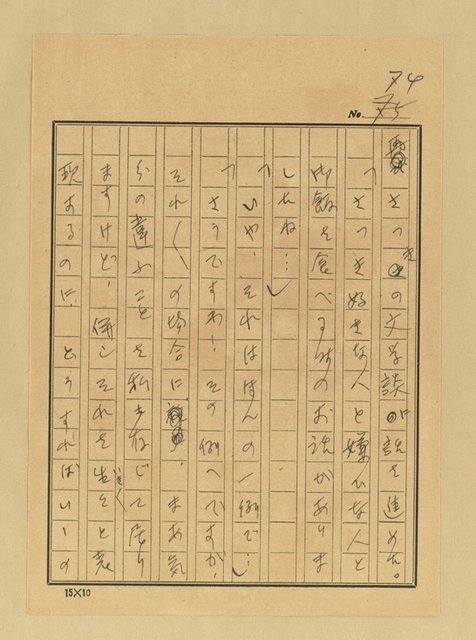 74
No. 75
さつきの文学談に話を進めた。
「さつき好きな人と嫌ひな人と
御飯を食べる時のお話がありま
したね…」
「いや、それはほんの一例で…」
「さうですわ!その例へですが、
それ〱の場合に、まあ気
分の違ふことを私も存じて居り
ますけど、併しそれを生々と表
現するのに、どうすればいゝの
15×10